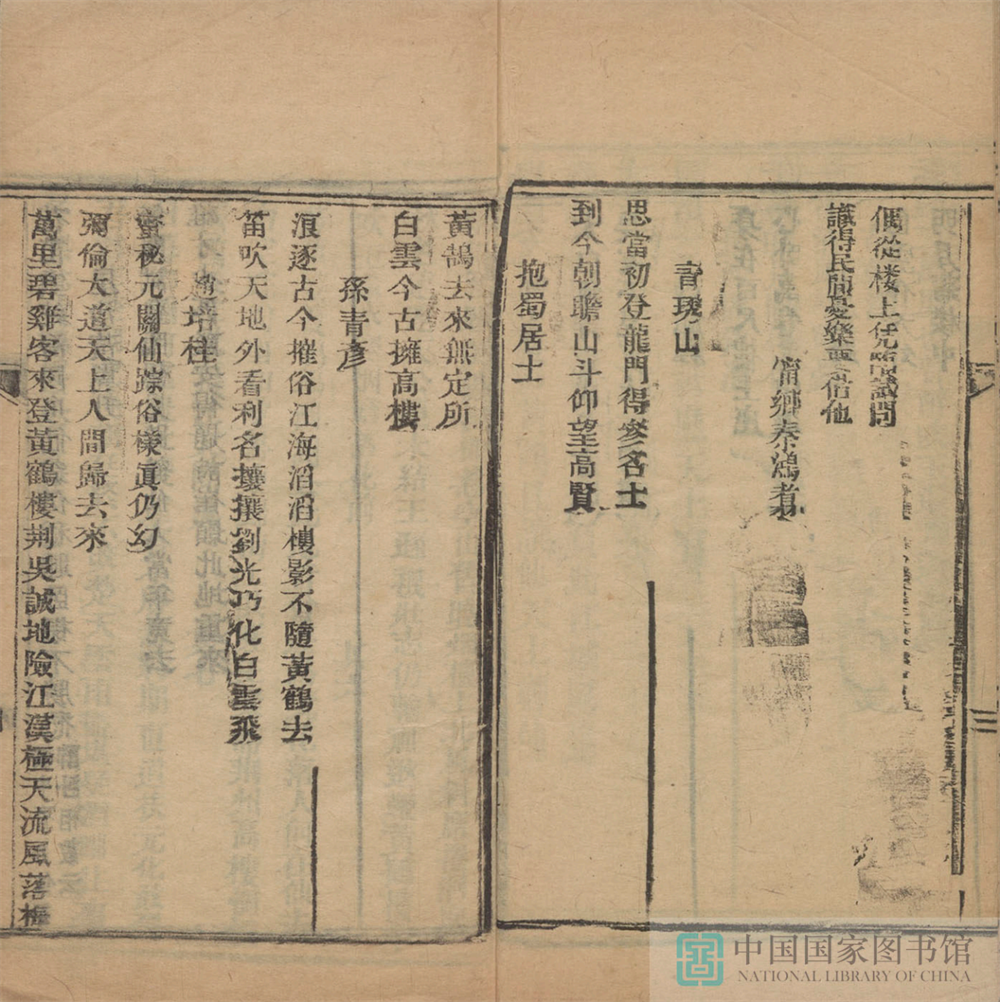 偶從楼上凭試問
識得民間憂樂
甯鄉秦鴻耆
山
思當初登龍門得參名士
到今朝瞻山斗仰望高賢
抱蜀居士
黃鵠去來無定所
白雲今古擁高樓
孫青彥
浪逐古今摧俗江海滔滔樓影不隨黃鶴去
笛吹天地外看利名攘攘劉光乃化白雲飛
趙培桂
蜜秘元關仙踪俗樣眞仍幻
彌倫大道天上人間歸去來
萬里碧雞客來登黃鶴樓荆吳誠地險江漢極天流風落梅
中国国家图书馆
NATIONAL LIBRARY OF CHINA